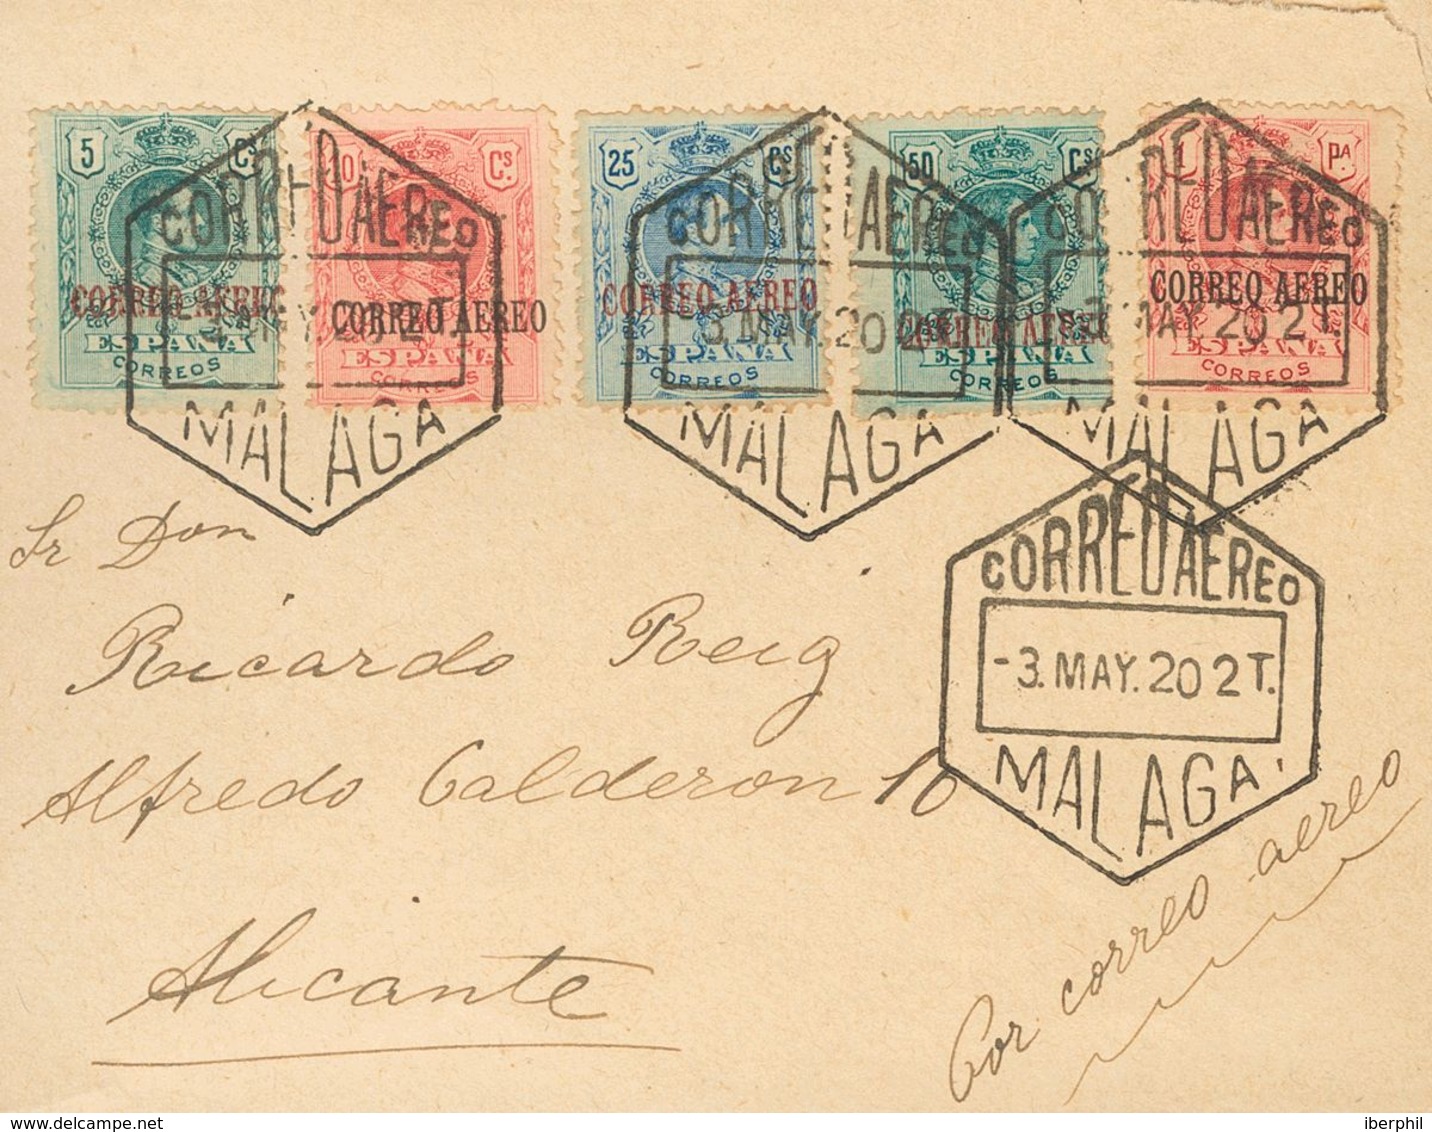 5 Cs
10 Cs.
25 Cs
50 Cs
1 PA
CORREO AEREO
CORREO AEREO
CORREO AEREO
CORREO AEREO
CORREO AEREO
ESPAÑA
CORREOS
ESPAÑA
CORREOS
ESPAÑA
CORREOS
ESPAÑA
CORREOS
ESPAÑA
CORREOS
CORREO AEREO
MAY. 20 2T.
MALAGA
CORREO AEREO
3. MAY. 20 2T.
MALAGA
CORREO AEREO
MAY. 20 2T.
MALAGA
Sr Don
Ricardo Reig
Alfredo Calderon 10
Alicante
CORREO AEREO
-3. MAY. 20 2T.
MALAGA.
Por correo aereo
delcampe.net
iberphil